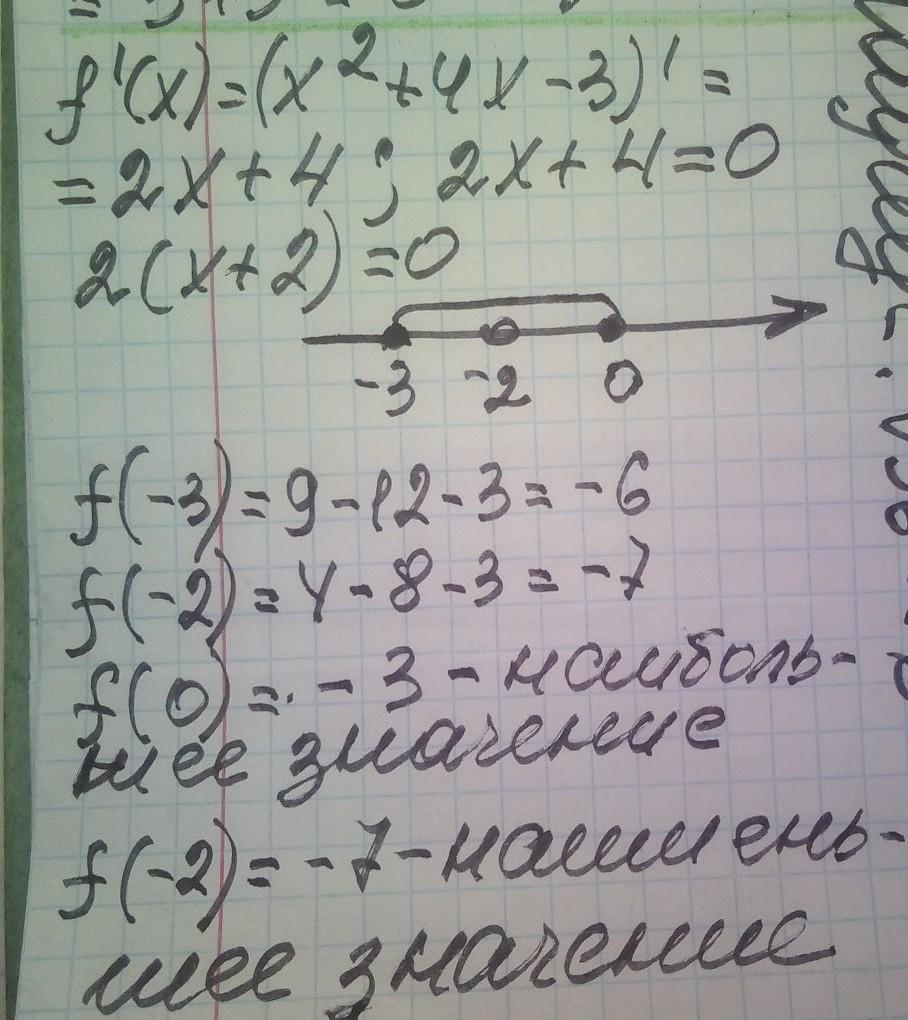 f'(x) = (x² + 4x - 3)' =
= 2x + 4 ; 2x + 4 = 0
2(x + 2) = 0
-3 -2 0
f(-3) = 9 - 12 - 3 = -6
f(-2) = 4 - 8 - 3 = -7
f(0) = - 3 - наиболь-
шее значение
f(-2) = -7 - наимень-
шее значение